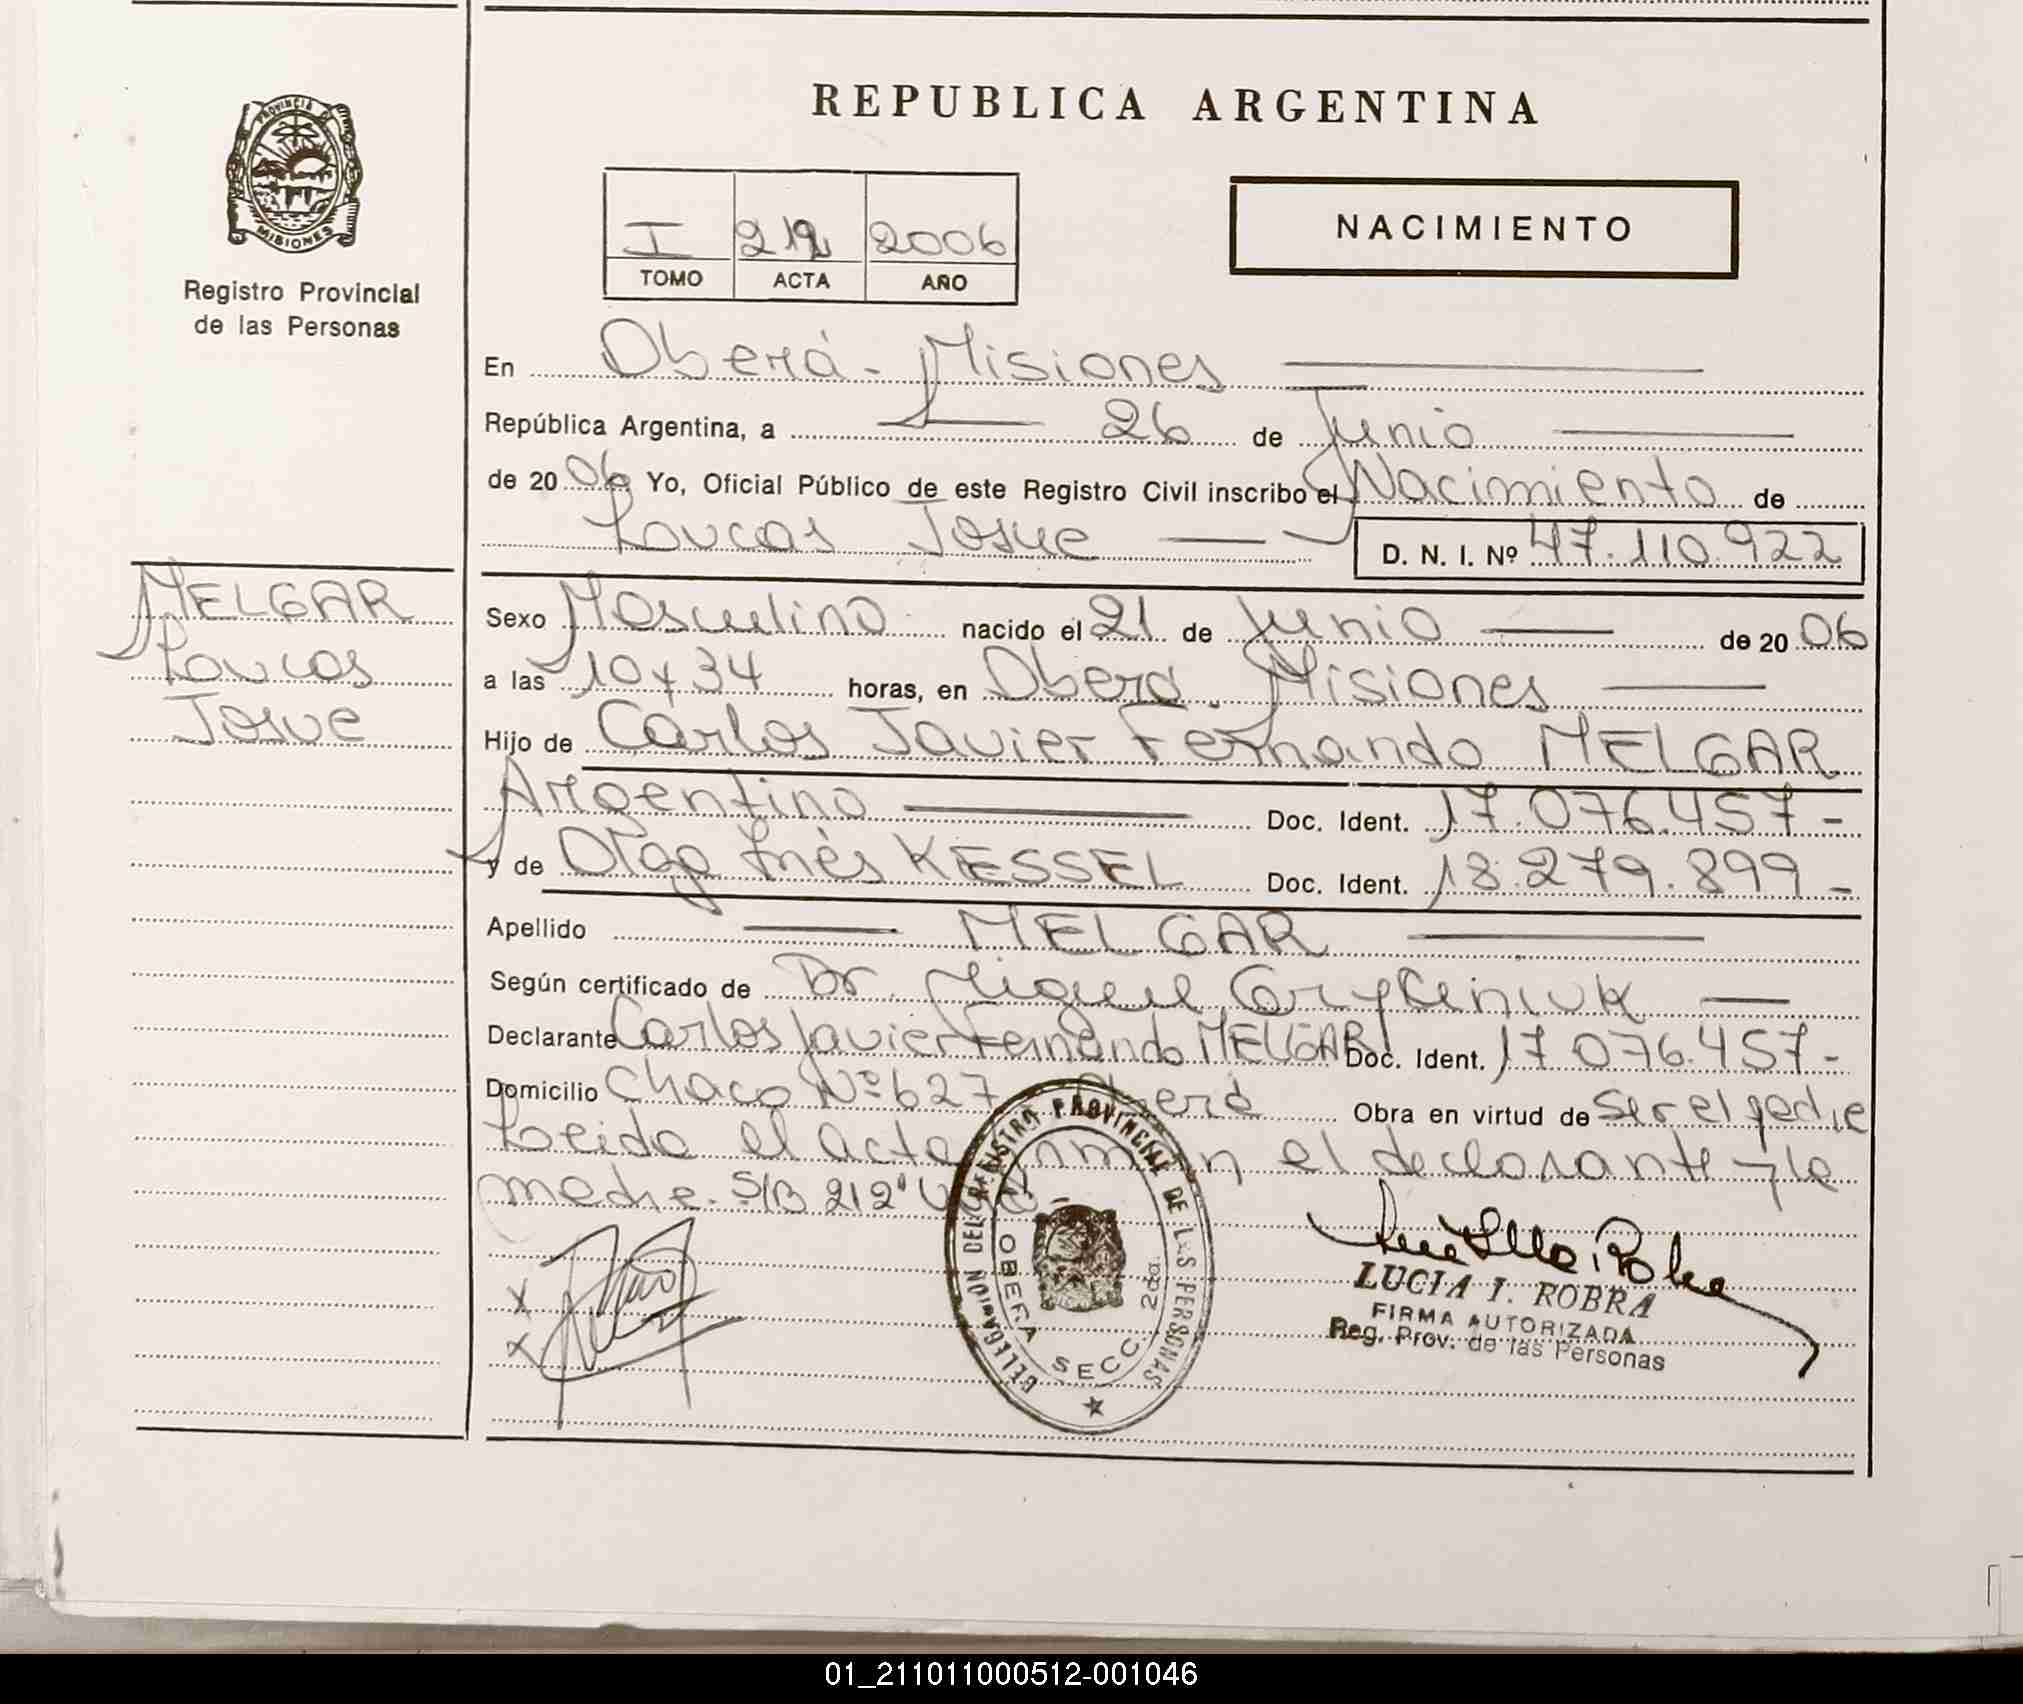 REPUBLICA ARGENTINA
PROVINCIA DE MISIONES
Registro Provincial
de las Personas
I 212 2006
TOMO ACTA AÑO
NACIMIENTO
En Oberá - Misiones
República Argentina, a 26 de Junio
de 20 06 Yo, Oficial Público de este Registro Civil inscribo el Nacimiento de
Loucas Josue D. N. I. Nº 47.110.922
MELGAR
Loucas
Josue
Sexo Masculino nacido el 21 de Junio de 20 06
a las 10 y 34 horas, en Oberá Misiones
Hijo de Carlos Javier Fernando MELGAR
Argentino Doc. Ident. 17.076.457-
y de Olga Inés KESSEL Doc. Ident. 18.279.899-
Apellido MELGAR
Según certificado de Dr. Miguel
Declarante Carlos Javier Fernando MELGAR Doc. Ident. 17.076.457-
Domicilio Chaco Nº 627 Oberá Obra en virtud de ser el padre
Leida el acta firman el declarante y la
madre. S/B 212" Vale
DELEGACION DEL REGISTRO PROVINCIAL DE LAS PERSONAS
OBERA SECC. 2da.
LUCIA I. ROBRA
FIRMA AUTORIZADA
Reg. Prov. de las Personas
01_211011000512-001046